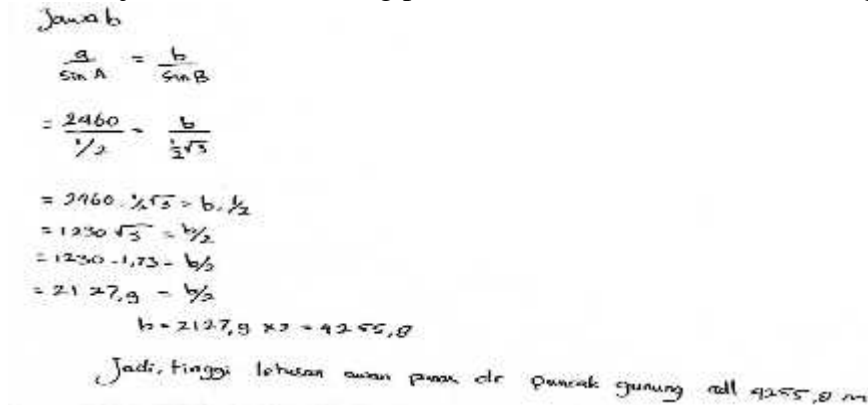 Jawab
a/sin A = b/sin B
= 2460/1/2 = b/½√3
= 2460 . ½√3 = b . ½
= 1230 √3 = b/2
= 1230 . 1,73 = b/2
= 2127,9 = b/2
b = 2127,9 x 2 = 4255,8
Jadi, tinggi letusan awan panas dr puncak gunung adl 4255,8 m